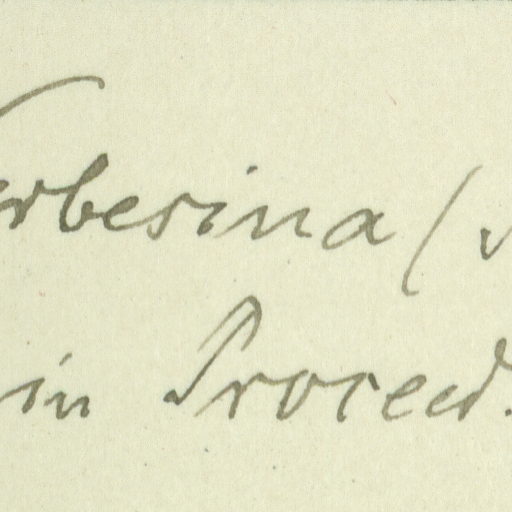 Verbesina (
in Proceed.